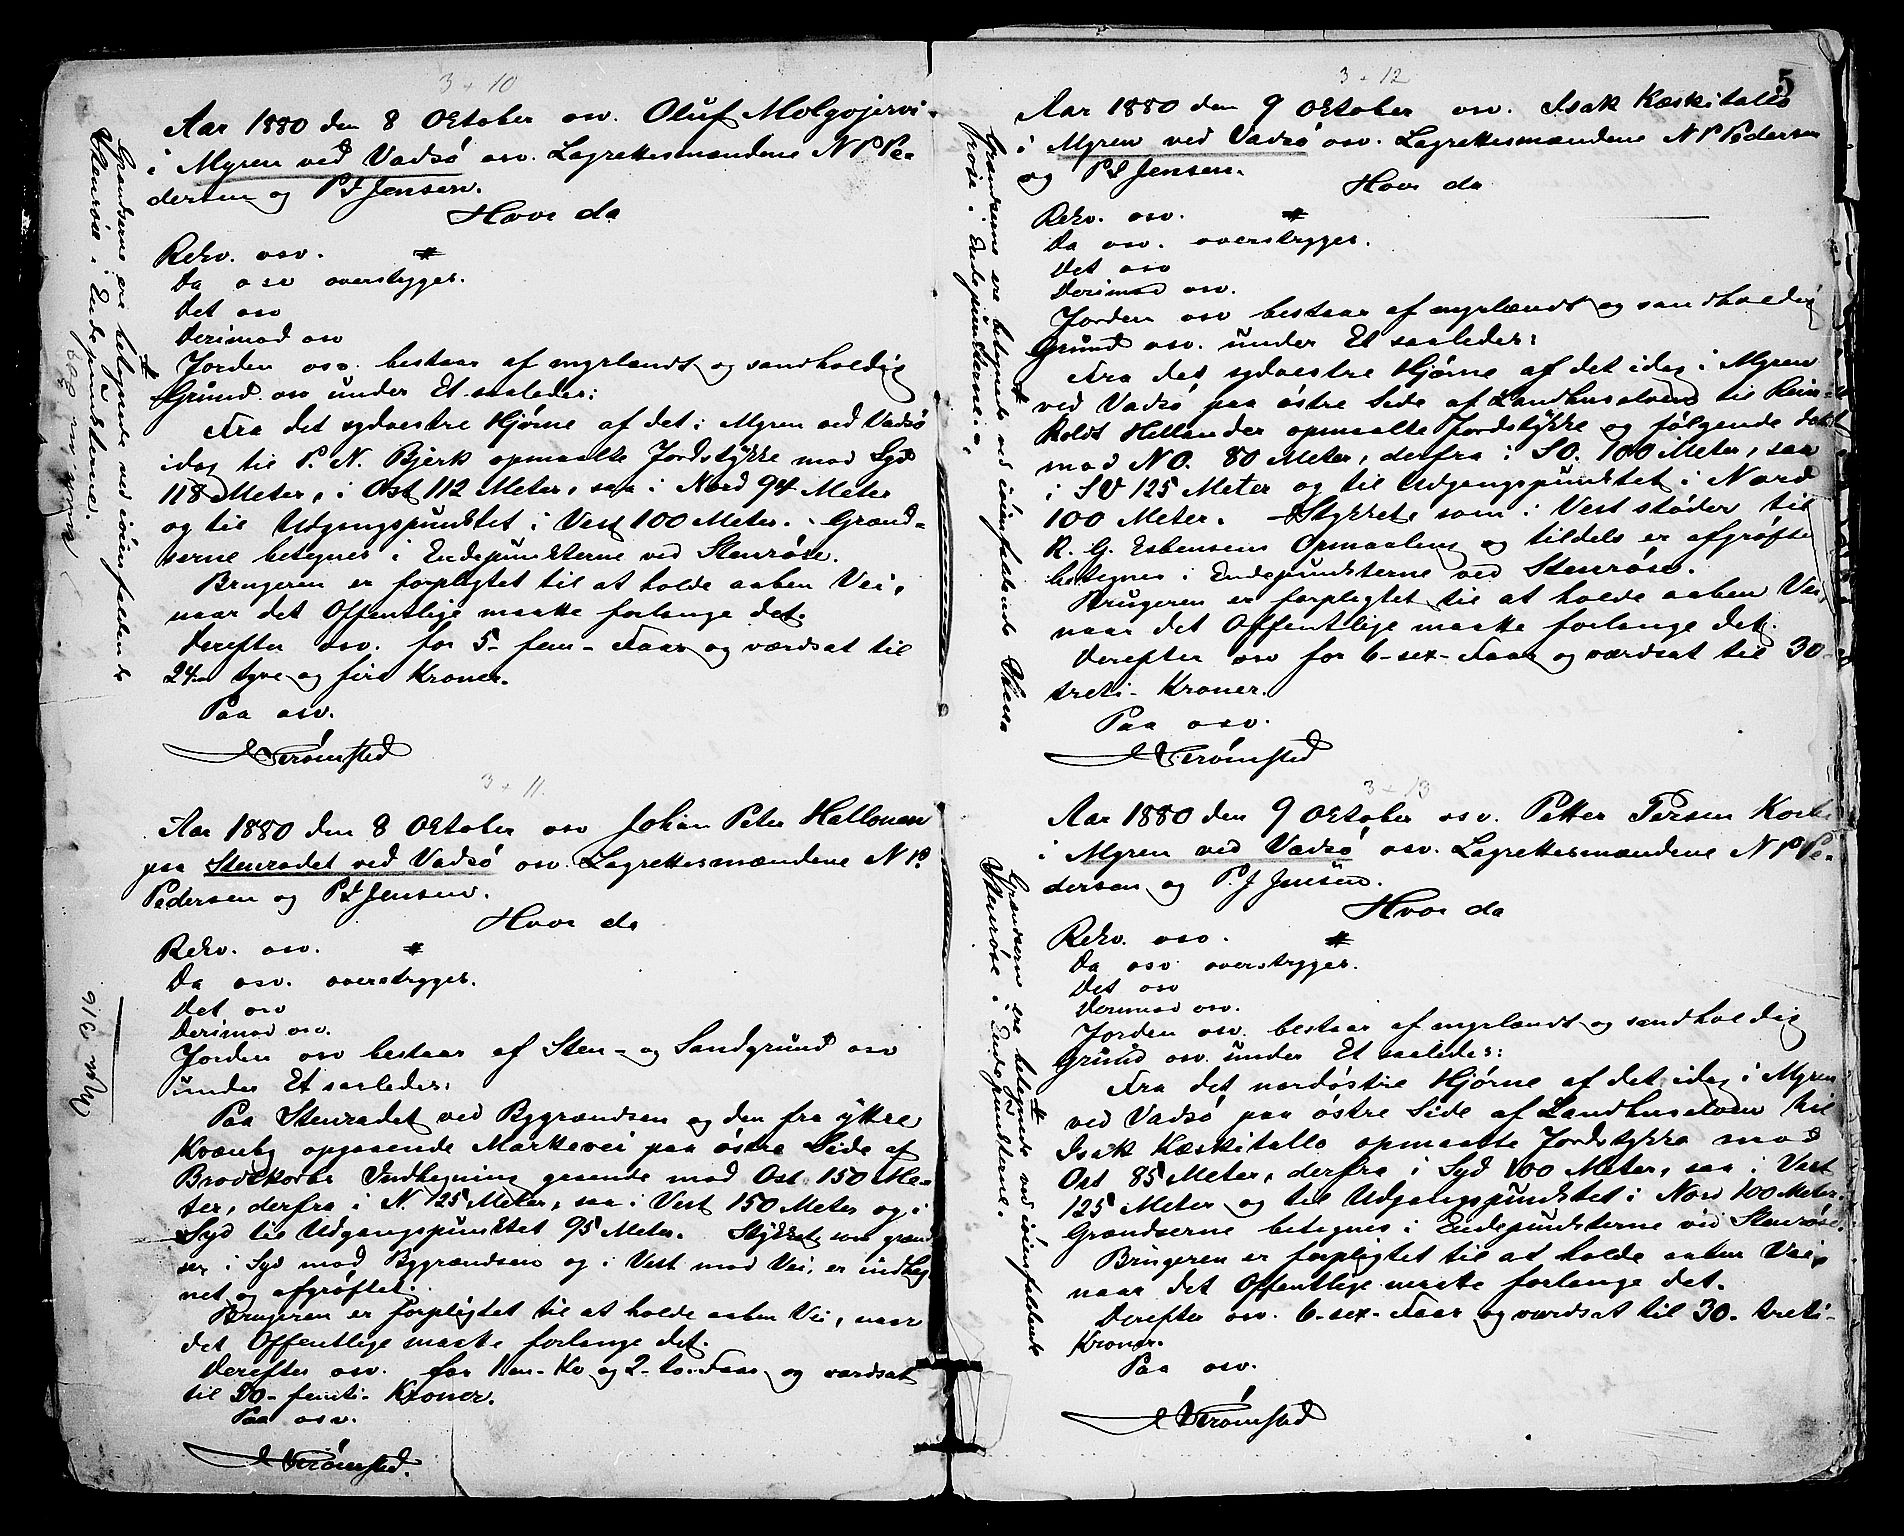 3 + 10
Aar 1880 den 8 October osv. Oluf Molgojervi
i Myren ved Vadsö osv. Lagrettesmændene N P Pe-
dersen og P J Jensen.
Hvor da
Rekv. osv. #
Da osv overstryges.
Det osv
Derimod osv
Jorden osv. bestaar af myrlændt og sandholdig
Grund osv under Et saaledes:
Fra det sydvestre Hjörne af det i Myren ved Vadsö
idag til P. N. Bjerk opmaalte Jordstykke mod Syd
118 Meter, i Ost 112 Meter, saa i Nord 94 Meter
og til Udgangspunktet i Vest 100 Meter. Grænd-
serne betegnes i Endepunkterne ved Stenröse.
Brugeren er forpligtet til at holde aaben Vei,
naar det Offentlige maatte forlange det.
Derefter osv. for 5 - fem - Faar og værdsat til
24 - tyve og fire Kroner.
Paa osv.
Strömsted
# Grændserne ere betegnede ved iöinefaldende
Stenröse i Endepunkterne.
3 + 11.
Aar 1880 den 8 October osv Johan Peter Hallonen
paa Stenradet ved Vadsö osv. Lagrettesmændene N P
Pedersen og P J Jensen.
Hvor da
Rekv. osv. #
Da osv. overstryges.
Det osv
Derimod osv.
Jorden osv bestaar af Sten- og Sandgrund osv
under Et saaledes:
Paa Stenradet ved Bygrændsen og den fra Yttre
Kvænby opgaaende Markevei paa östre Side af
Brodtkorbs Indhegning gaaende mod Ost 150 Me-
ter, derfra i N. 125 Meter, saa i Vest 150 Meter og i
Syd til Udgangspunktet 95 Meter. Stykket som grænd
ser i Syd mod Bygrændsen og i Vest mod Vei, er indheg
net og afgröftet.
Brugeren er forpligtet til at holde aaben Vei, naar
det Offentlige maatte forlange det.
Derefter osv. for 1 en - Ko og 2 - to - Faar og værdsat
til 50 - femti - Kroner.
Paa osv.
Strömsted.
5
3 + 12
Aar 1880 den 9 October osv. Isak Kæskitallo
i Myren ved Vadsö osv. Lagrettesmændene N P Pedersen
og P J Jensen.
Hvor da
Rekv. osv. #
Da osv. overstryges.
Det osv
Derimod osv.
Jorden osv bestaar af myrlændt og sandholdig
Grund osv. under Et saaledes:
Fra det sydvestre Hjörne af det idag i Myren
ved Vadsö paa östre Side af Landhuselven til Rein-
holdt Hellander opmaalte Jordstykke og fölgende dette
mod NO. 80 Meter, derfra i SO. 100 Meter, saa
i SV 125 Meter og til Udgangspunktet i Nord
100 Meter. Stykket som i Vest stöder til
R. G. Esbensens Opmaaling og tildels er afgröftet
betegnes i Endepunkterne ved Stenröse.
Brugeren er forpligtet til at holde aaben Vei,
naar det Offentlige maatte forlange det.
Derefter osv for 6 - sex - Faar og værdsat til 30 -
treti - Kroner.
Paa osv.
Strömsted
# Grændserne ere betegnede ved iöinefaldende Stens-
röse i Endepunkterne.
3 + 13
Aar 1880 den 9 October osv. Petter Persen
i Myren ved Vadsö osv. Lagrettesmændene N P Pe-
dersen og P. J Jensen.
Hvor da
Rekv. osv. #
Da osv overstryges.
Det osv
Derimod osv.
Jorden osv. bestaar af myrlændt og sandholdig
Grund osv. under Et saaledes:
Fra det nordöstre Hjörne af det idag i Myren
ved Vadsö paa östre Side af Landhuselven til
Isak Kæskitallo opmaalte Jordstykke mod
Ost 85 Meter, derfra i Syd 100 Meter, saa i Vest
125 Meter og til Udgangspunktet i Nord 100 Meter.
Grændserne betegnes i Endepunkterne ved Stenröse.
Brugeren er forpligtet til at holde aaben Vei,
naar det Offentlige maatte forlange det.
Derefter osv. 6 - sex - Faar og værdsat til 30 - treti -
Kroner.
Paa osv.
Strömsted
# Grændserne ere betegnede ved iöinefaldende
Stenröse i Endepunkterne.